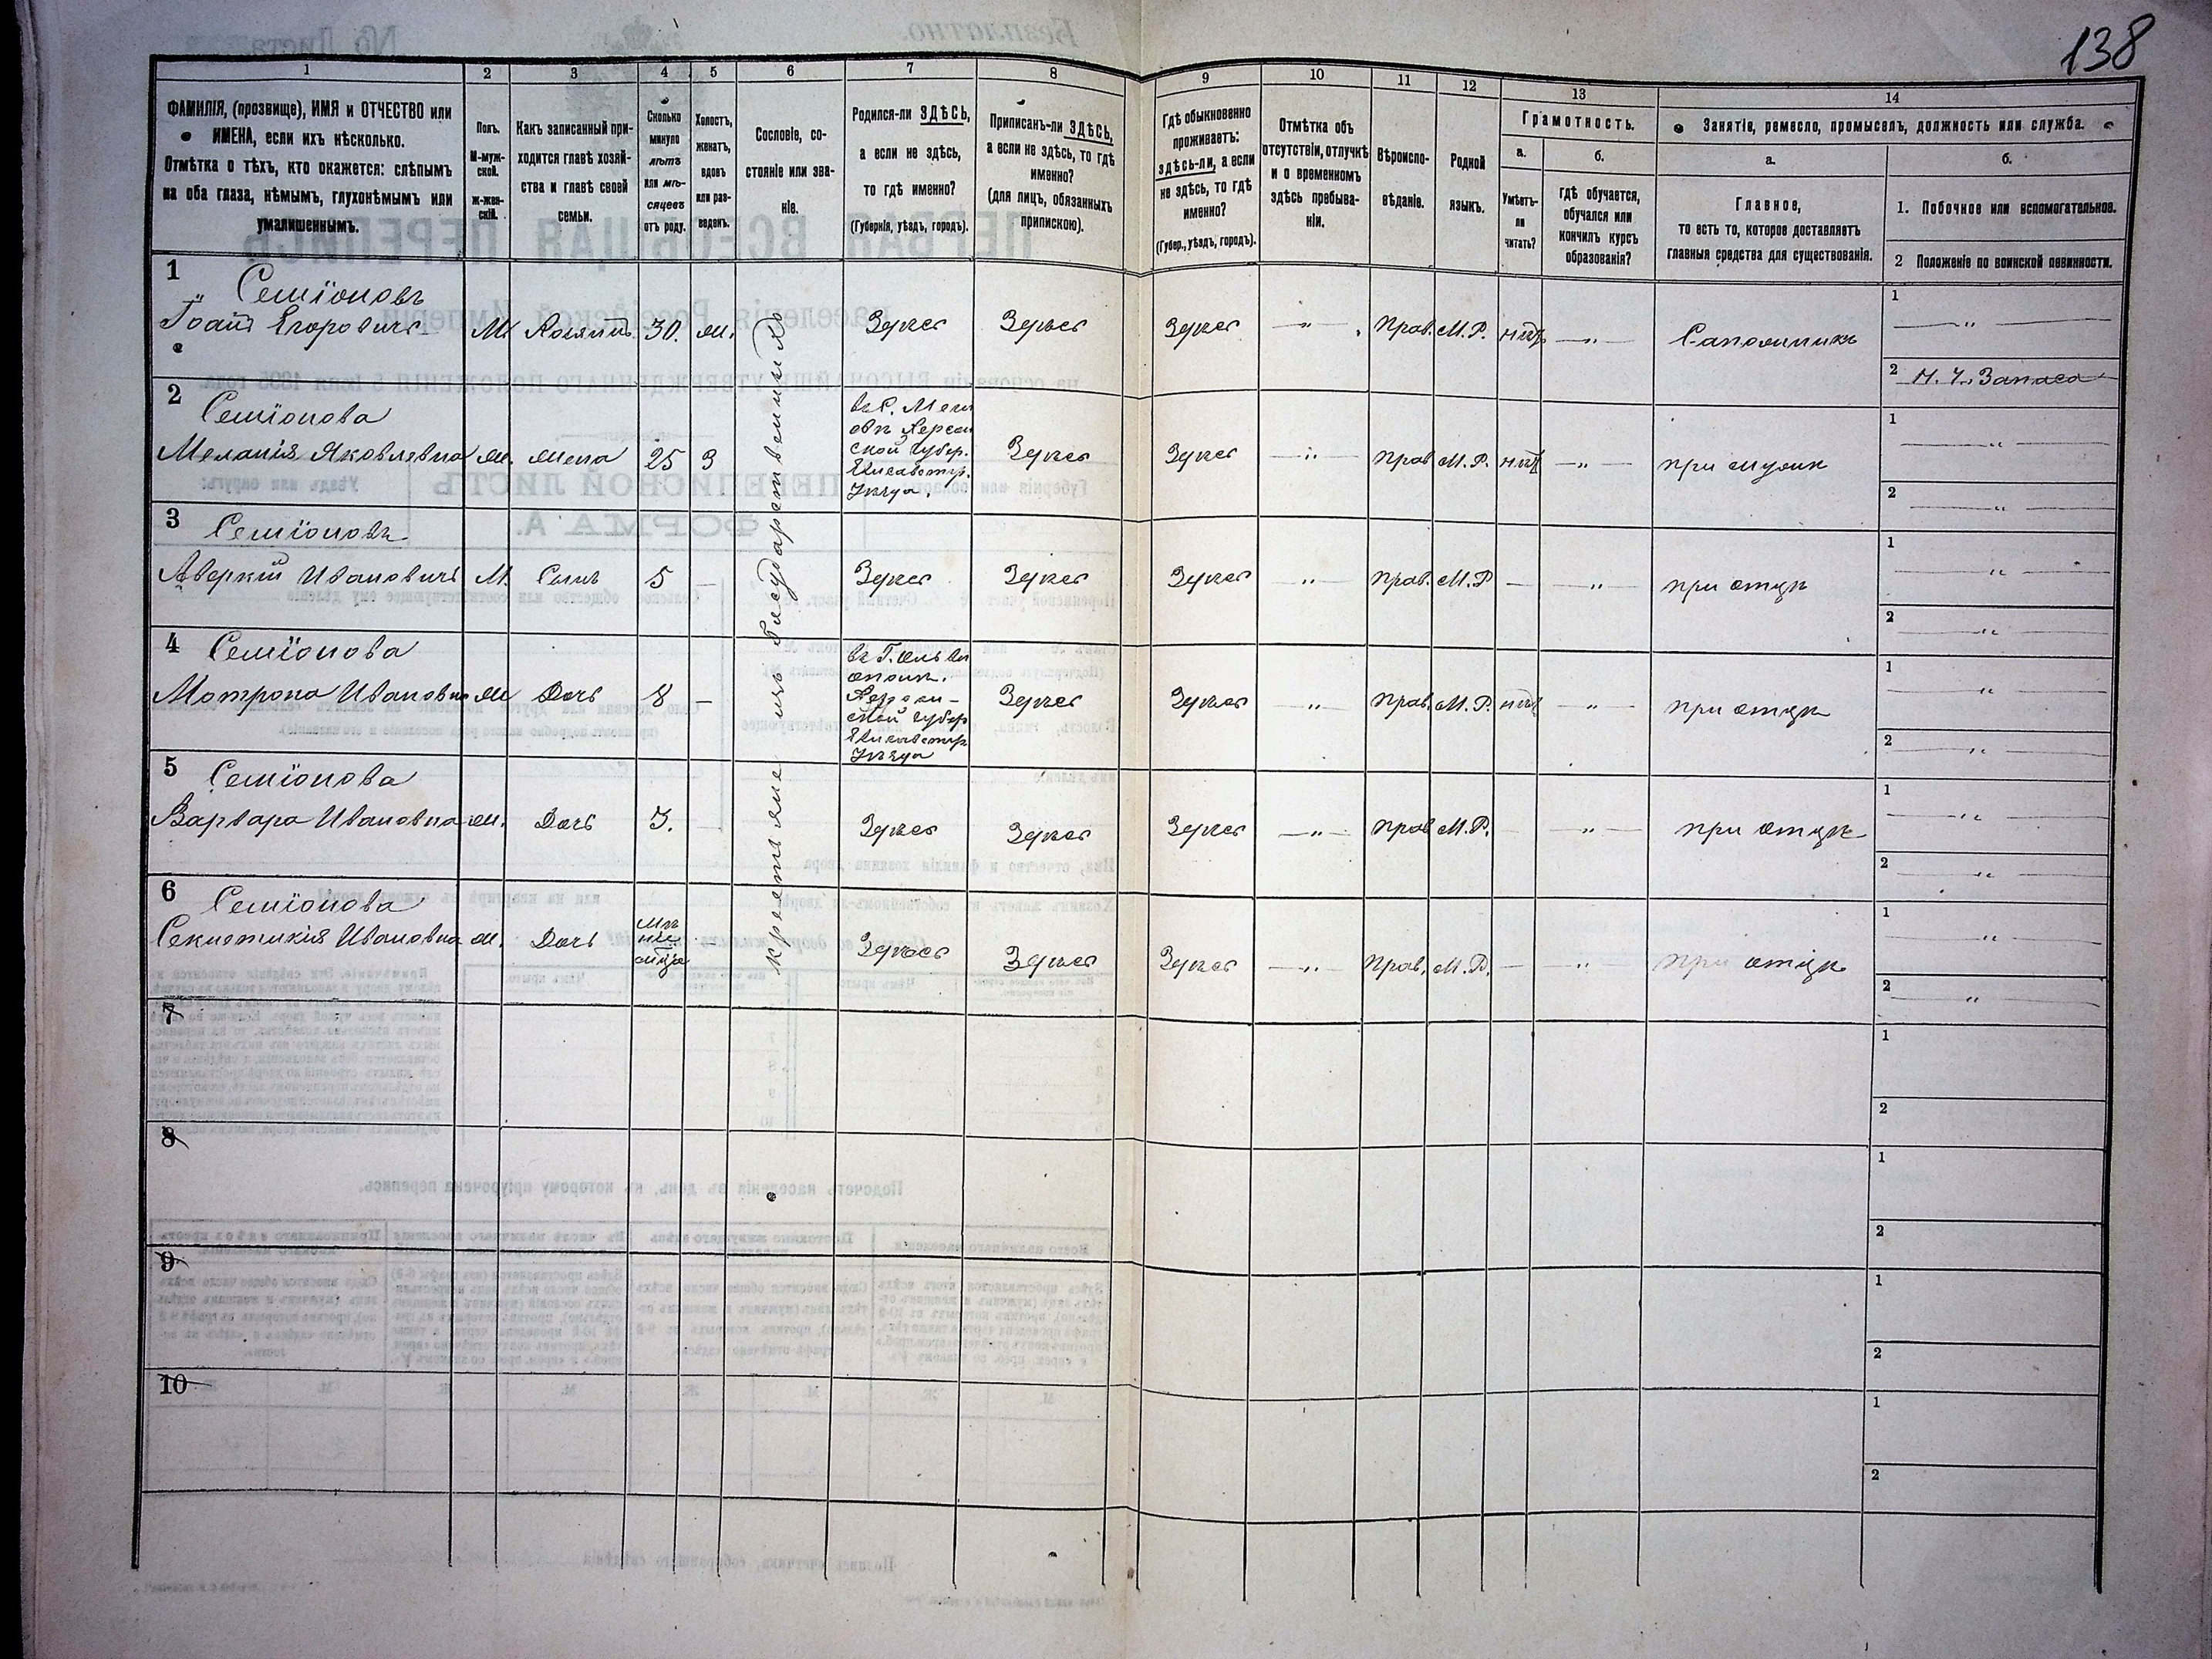 138
1 2 3 4 5 6 7 8 9 10 11 12 13 14
ФАМИЛІЯ, (прозвище), ИМЯ и ОТЧЕСТВО или
ИМЕНА, если ихъ нѣсколько.
Отмѣтка о тѣхъ, кто окажется: слѣпымъ
на оба глаза, нѣмымъ, глухонѣмымъ или
умалишеннымъ.
Полъ.
М-муж-
ской.
ж-жен-
скій.
Какъ записанный при-
ходится главѣ хозяй-
ства и главѣ своей
семьи.
Сколько
минуло
лѣтъ
или мѣ-
сяцевъ
отъ роду.
Холостъ,
женатъ,
вдовъ
или раз-
веденъ.
Сословіе, со-
стояніе или зва-
ніе.
Родился-ли ЗДѢСЬ,
а если не здѣсь,
то гдѣ именно?
(Губернія, уѣздъ, городъ).
Приписанъ-ли ЗДѢСЬ,
а если не здѣсь, то гдѣ
именно?
(для лицъ, обязанныхъ
припискою).
Гдѣ обыкновенно
проживаетъ:
здѣсь-ли, а если
не здѣсь, то гдѣ
именно?
(Губер., уѣздъ, городъ).
Отмѣтка объ
отсутствіи, отлучкѣ
и о временномъ
здѣсь пребыва-
ніи.
Вѣроиспо-
вѣданіе.
Родной
языкъ.
Грамотность.
а.
Умѣетъ-
ли
читать?
б.
Гдѣ обучается,
обучался или
кончилъ курсъ
образованія?
Занятіе, ремесло, промыселъ, должность или служба.
а.
Главное,
то есть то, которое доставляетъ
главныя средства для существованія.
б.
1. Побочное или вспомогательное.
2 Положеніе по воинской повинности.
крестьяне изъ Государственныхъ
1
Семіоновъ
Іоанъ Егоровичъ М. Хозяинъ 30. ж. Здѣсь Здѣсь Здѣсь — „ Прав. М.Р. нѣтъ — „ — Сапожникъ
1 — „ —
2 Н. Ч. Запаса
2
Семіонова
Меланія Яковлевна ж. жена 25 З
Херсон
ской Губер.
Елисаветгр.
Уѣзда.
Здѣсь Здѣсь — „ — Прав М.Р. нѣтъ — „ — при мужѣ
1 — „ —
2 — „ —
3
Семіоновъ
Аверкій Ивановичъ М. Сынъ 5 — Здѣсь Здѣсь Здѣсь — „ — Прав. М.Р — „ — при отцѣ
1 — „ —
2 — „ —
4
Семіонова
Мотрона Ивановна ж Дочь 8 —
Херсон-
ской Губер
Елисаветгр
Уѣзда
Здѣсь Здѣсь — „ — Прав. М.Р. нѣтъ — „ — при отцѣ
1 — „ —
2 — „ —
5
Семіонова
Варвара Ивановна ж. Дочь 3. — Здѣсь Здѣсь Здѣсь — „ — Прав М.Р. — „ — при отцѣ
1 — „ —
2 — „ —
6
Семіонова
Секлетикія Ивановна ж. Дочь — Здѣсь Здѣсь Здѣсь — „ — Прав. М.Р. — „ при отцѣ
1 — „ —
2 — „ —
7
1
2
8
1
2
9
1
2
10
1
2